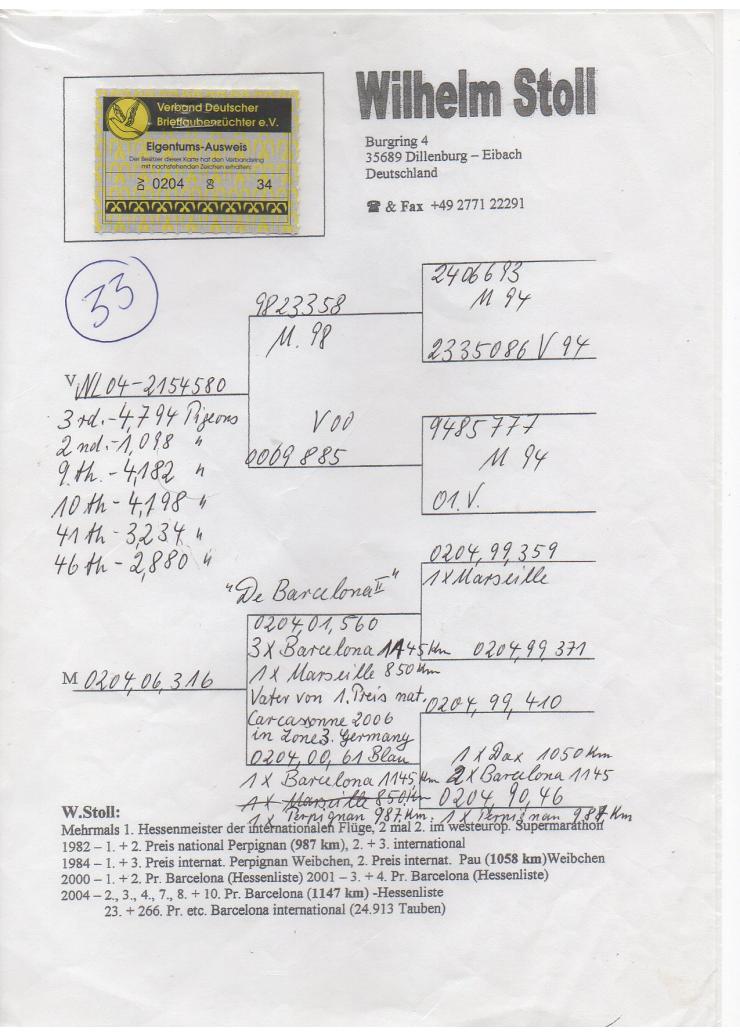 Wilhelm Stoll
Verband Deutscher
Brieftaubenzüchter e.V.
Eigentums-Ausweis
Der Besitzer dieser Karte hat den Verbandsring
mit nachstehenden Zeichen erhalten:
DV 0204 34
Burgring 4
35689 Dillenburg – Eibach
Deutschland
☎ & Fax +49 2771 22291
33
9823358
M. 98
2406693
M 94
2335086 V 94
V NL 04-2154580
3 rd.-4,794 Pigeons
2 nd.-1,098 "
9 th.-4,182 "
10 th-4,198 "
41 th-3,234 "
46 th-2,880 "
V 00
0069885
9485777
M 94
01.V.
"De Barcelona II"
0204,01,560
3 X Barcelona 1145 Km
1 X Marseille 850 Km
Vater von 1. Preis nat.
Carcasonne 2006
in Zone 3. Germany
0204,00,61 Blau
1 X Barcelona 1145 Km
1 X Marseille 850 Km
1 X Perpignan 987 Km.
M 0204,06,316
0204,99,359
1 X Marseille
0204,99,371
0204,99,410
1 X Dax 1050 Km
2 X Barcelona 1145
0204 90,46
1 X Perpignan 987 Km
W.Stoll:
Mehrmals 1. Hessenmeister der internationalen Flüge, 2 mal 2. im westeurop. Supermarathon
1982 – 1. + 2. Preis national Perpignan (987 km), 2. + 3. international
1984 – 1. + 3. Preis internat. Perpignan Weibchen, 2. Preis internat. Pau (1058 km)Weibchen
2000 – 1. + 2. Pr. Barcelona (Hessenliste) 2001 – 3. + 4. Pr. Barcelona (Hessenliste)
2004 – 2., 3., 4., 7., 8. + 10. Pr. Barcelona (1147 km) -Hessenliste
23. + 266. Pr. etc. Barcelona international (24.913 Tauben)